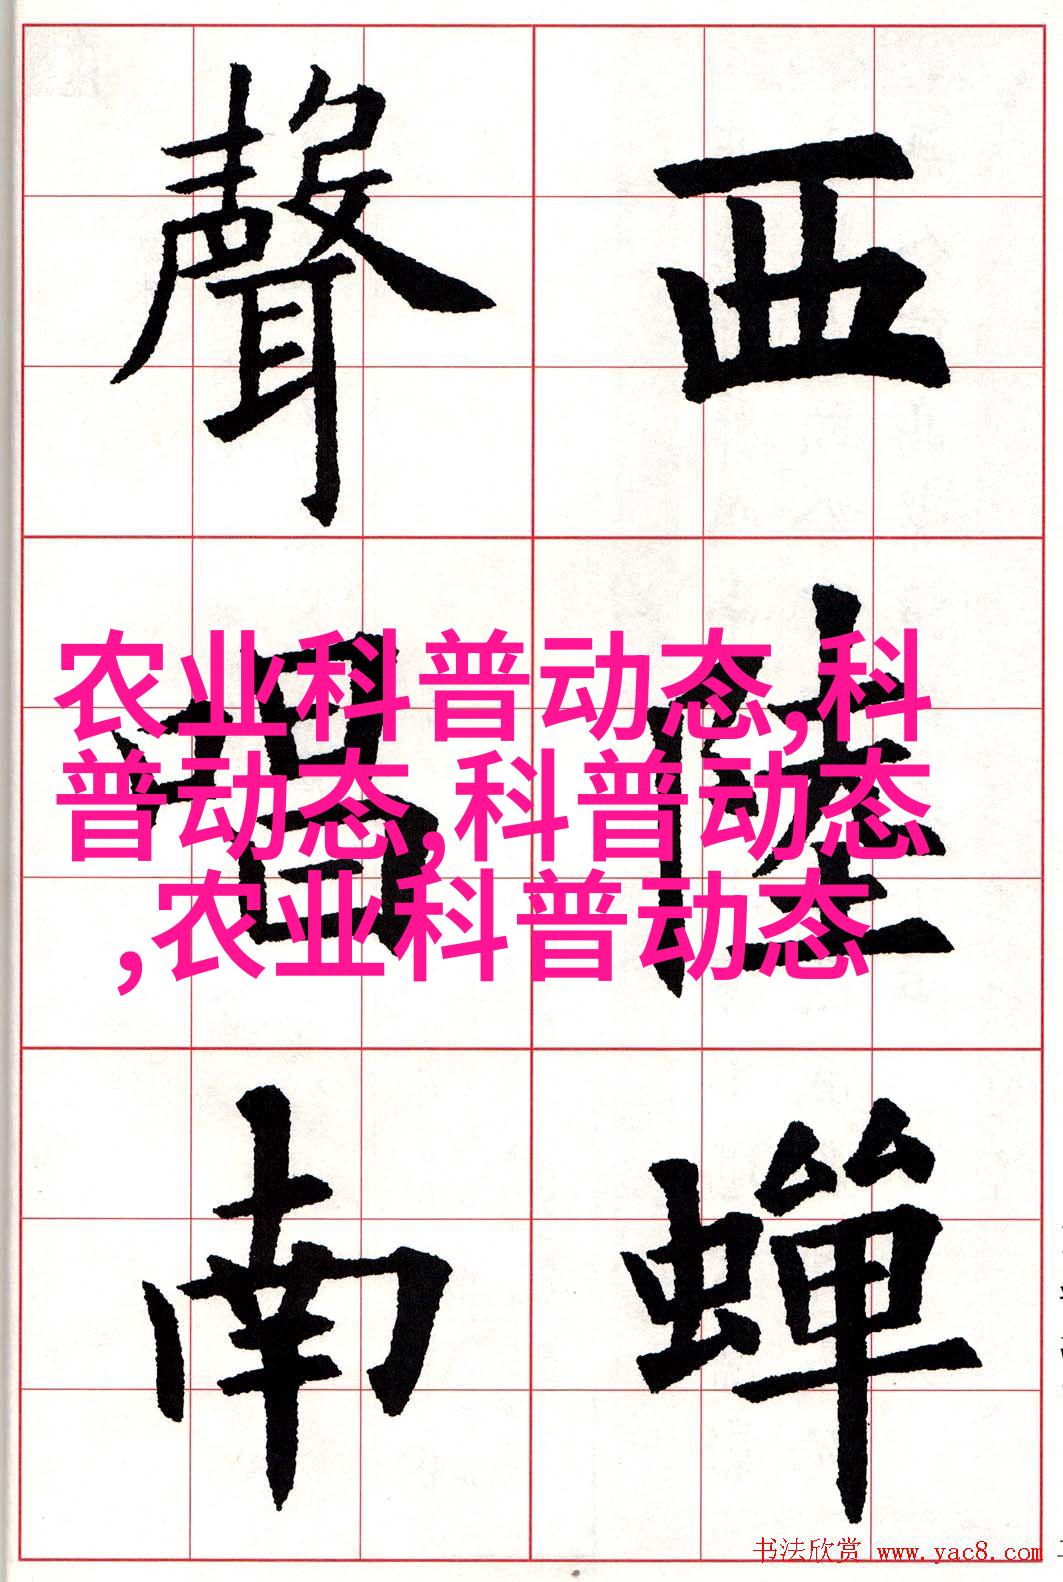 西陸蟬
聲唱南
农业科普动态,科
普动态,科普动态
,农业科普动态
书法欣赏 www.yac8.com